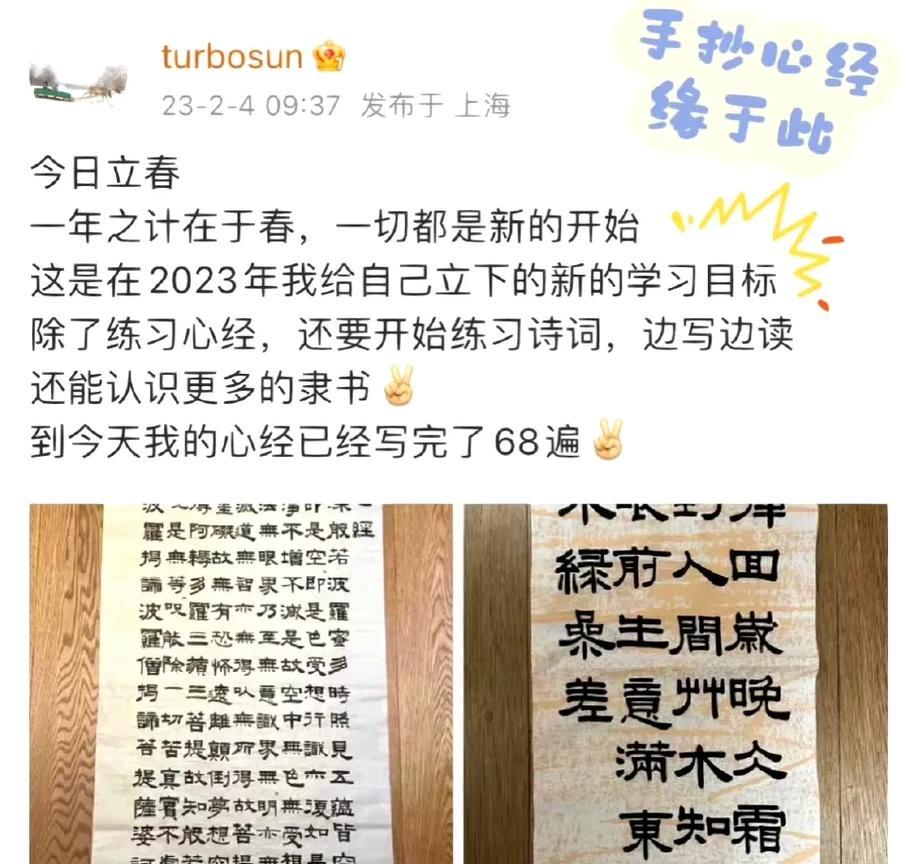 turbosun
23-2-4 09:37 发布于 上海
手抄心经
缘于此
今日立春
一年之计在于春，一切都是新的开始
这是在2023年我给自己立下的新的学习目标
除了练习心经，还要开始练习诗词，边写边读
还能认识更多的隶书✌🏻
到今天我的心经已经写完了68遍✌🏻
經
般若波羅蜜多時照見五蘊皆
是空即是色受想行識亦復如
不增不減是故空中無色無受
無眼界乃至無意識界無明亦
道無智亦無得以無所得故菩
礙故無有恐怖遠離顛倒夢想
阿耨多羅三藐三菩提故知般
是無等咒般除一切苦真實不
羅揭諦波羅僧揭諦菩提薩婆
回歲晚仌霜
人間艸木知
前生意滿東
綠參差